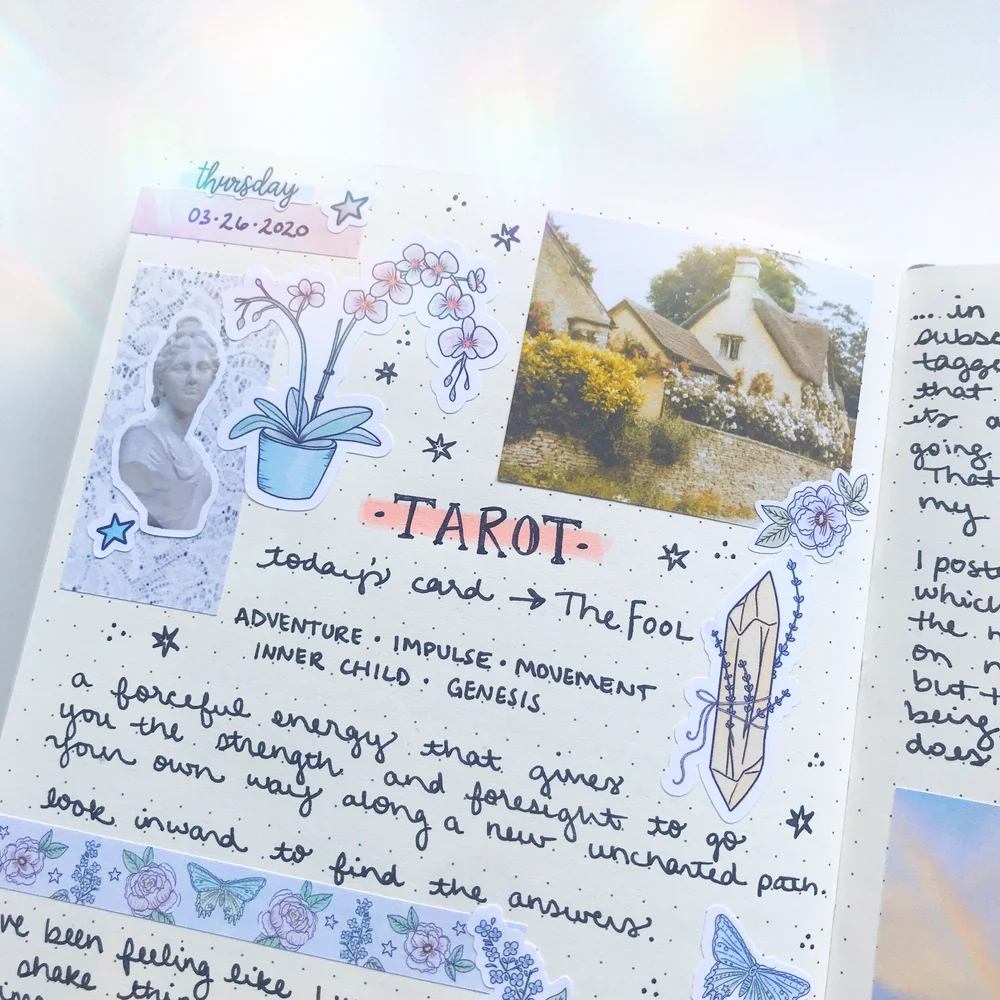 thursday
03·26·2020
·TAROT·
today's card → The Fool
ADVENTURE · IMPULSE · MOVEMENT
INNER CHILD · GENESIS
a forceful energy that gives
you the strength and foresight to go
your own way along a new uncharted path.
look inward to find the answers.
've been feeling like I
shake
.... in
that
its a
going
That
my
I post
which
the
on
but
being
does